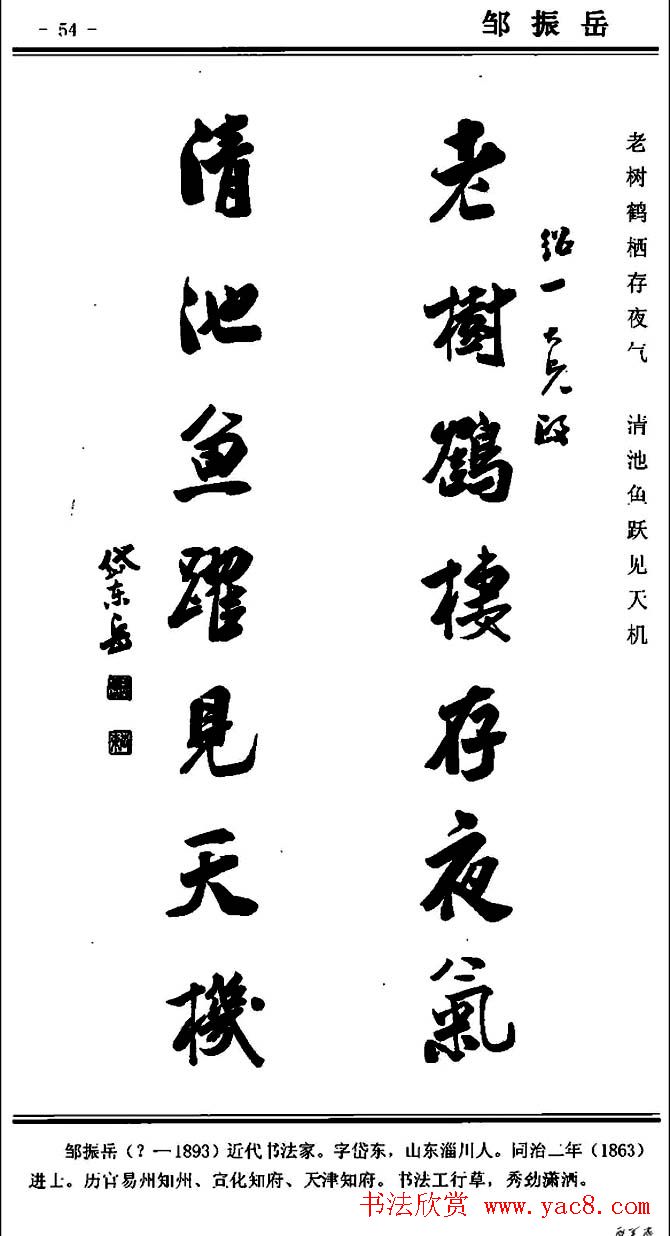 - 54 -
邹振岳
老树鹤栖存夜气 清池鱼跃见天机
绍一大兄
老樹鶴棲存夜氣
清池魚躍見天機
岱东岳
邹振岳（？—1893）近代书法家。字岱东，山东淄川人。同治二年（1863）
进士。历官易州知州、宣化知府、天津知府。书法工行草，秀劲潇洒。
书法欣赏 www.yac8.com